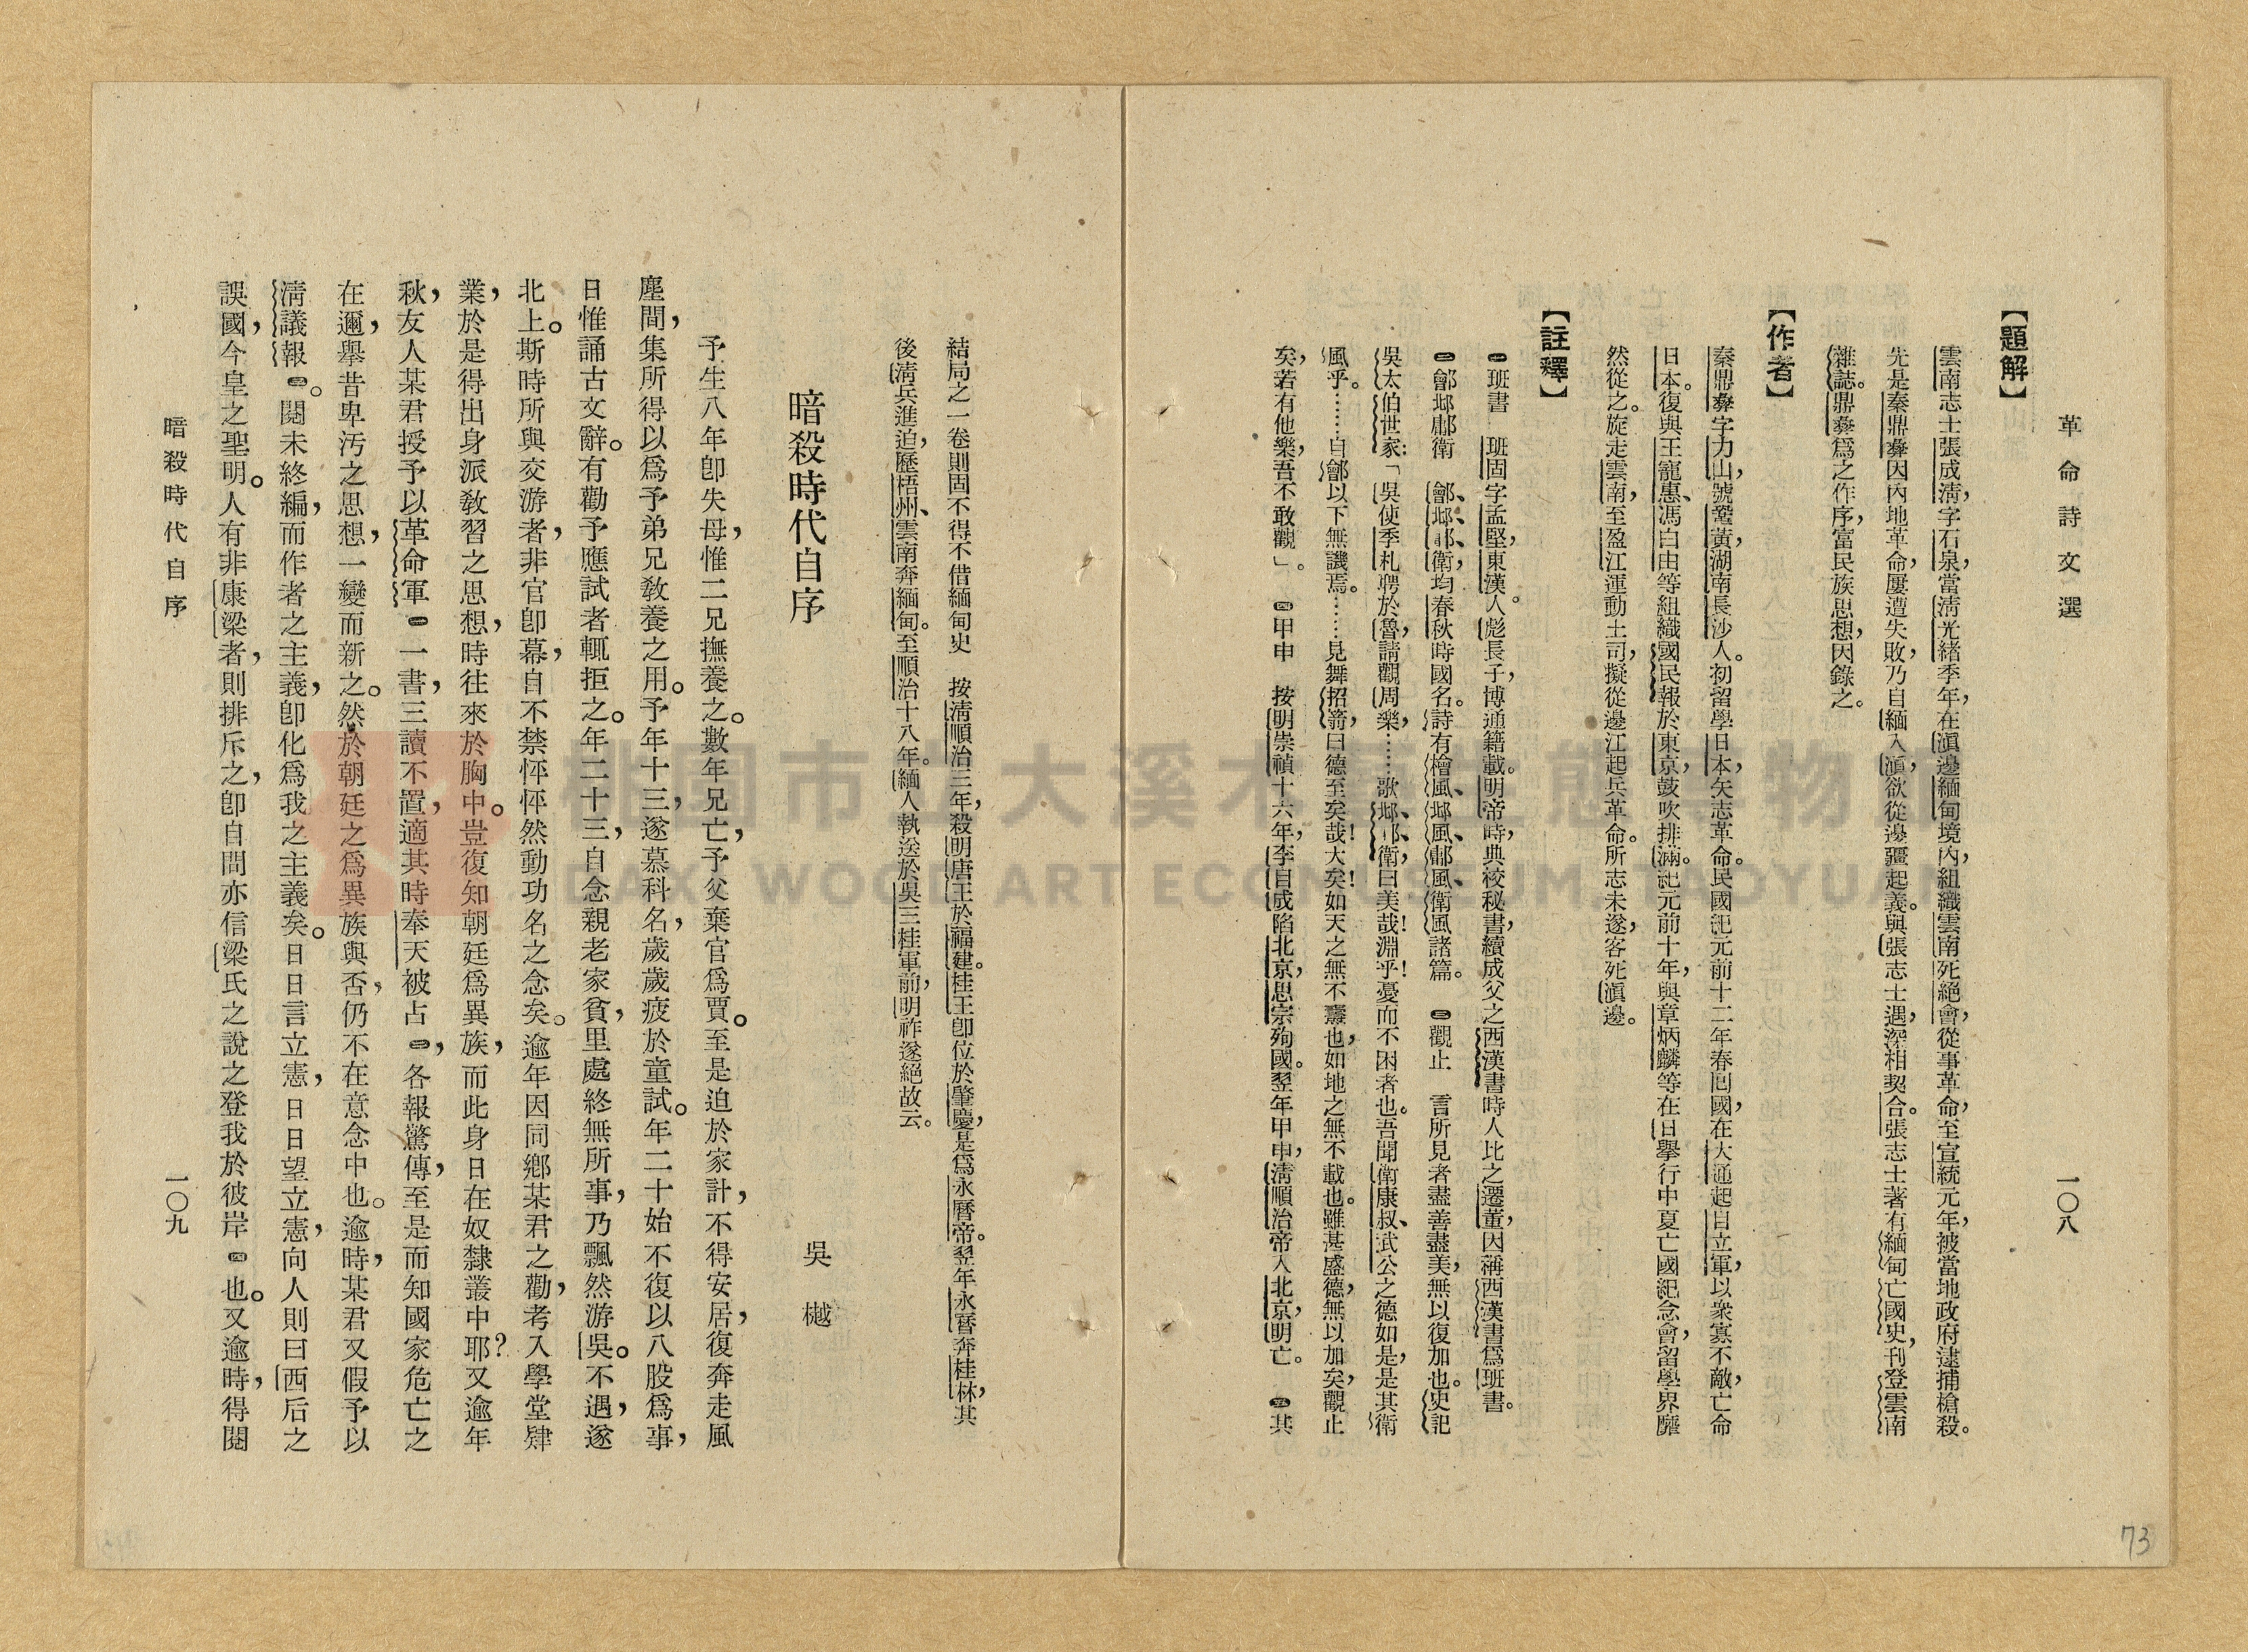 革命詩文選
一〇八
【題解】
雲南志士張成淸,字石泉,當淸光緒季年,在滇邊緬甸境內,組織雲南死絕會,從事革命,至宣統元年,被當地政府逮捕槍殺。
先是秦鼎彝因內地革命,屢遭失敗,乃自緬入滇,欲從邊疆起義。與張志士遇,深相契合。張志士著有緬甸亡國史,刊登雲南
雜誌。鼎彝爲之作序,富民族思想,因錄之。
【作者】
秦鼎彝字力山,號鞏黃,湖南長沙人。初留學日本,矢志革命。民國紀元前十二年春回國,在大通起自立軍,以衆寡不敵,亡命
日本。復與王寵惠、馮自由等組織國民報於東京,鼓吹排滿。紀元前十年,與章炳麟等在日舉行中夏亡國紀念會,留學界靡
然從之。旋走雲南,至盈江運動土司,擬從邊江起兵革命。所志未遂,客死滇邊。
【註釋】
㊀班書 班固字孟堅,東漢人。彪長子,博通籍載。明帝時,典校秘書,續成父之西漢書時人比之遷董,因稱西漢書爲班書。
㊁鄶邶鄘衛 鄶、邶、鄘、衛,均春秋時國名。詩有檜風、邶風、鄘風、衛風諸篇。 ㊂觀止 言所見者盡善盡美,無以復加也。史記
吳太伯世家:「吳使季札聘於魯,請觀周樂,……歌邶、鄘、衛,曰美哉!淵乎!憂而不困者也。吾聞衛康叔、武公之德如是,是其衛
風乎。……自鄶以下無譏焉。……見舞招箾,曰德至矣哉!大矣!如天之無不燾也,如地之無不載也。雖甚盛德,無以加矣,觀止
矣,若有他樂,吾不敢觀」。 ㊃甲申 按明崇禎十六年,李自成陷北京,思宗殉國。翌年甲申,淸順治帝入北京,明亡。 ㊄其
結局之一卷則固不得不借緬甸史 按淸順治三年,殺明唐王於福建。桂王卽位於肇慶,是爲永曆帝。翌年永曆奔桂林,其
後淸兵進迫,歷梧州、雲南奔緬甸。至順治十八年。緬人執送於吳三桂軍前,明祚遂絕故云。
暗殺時代自序
吳樾
予生八年卽失母,惟二兄撫養之。數年兄亡,予父棄官爲賈。至是迫於家計,不得安居,復奔走風
塵間,集所得以爲予弟兄敎養之用。予年十三,遂慕科名,歲歲疲於童試。年二十始不復以八股爲事,
日惟誦古文辭。有勸予應試者輒拒之。年二十三,自念親老家貧,里處終無所事,乃飄然游吳。不遇,遂
北上。斯時所與交游者,非官卽幕,自不禁怦怦然動功名之念矣。逾年因同鄕某君之勸,考入學堂肄
業,於是得出身派敎習之思想,時往來於胸中。豈復知朝廷爲異族,而此身日在奴隸叢中耶?又逾年
秋,友人某君授予以革命軍㊀一書,三讀不置,適其時奉天被占㊁,各報驚傳,至是而知國家危亡之
在邇,舉昔卑汚之思想,一變而新之。然於朝廷之爲異族與否,仍不在意念中也。逾時,某君又假予以
淸議報㊂。閱未終編,而作者之主義,卽化爲我之主義矣。日日言立憲,日日望立憲,向人則曰西后之
誤國,今皇之聖明。人有非康梁者,則排斥之,卽自問亦信梁氏之說之登我於彼岸㊃也。又逾時,得閱
暗殺時代自序
一〇九
73
桃園市立大溪木藝生態博物館
DAXI WOOD ART ECOMUSEUM, TAOYUAN